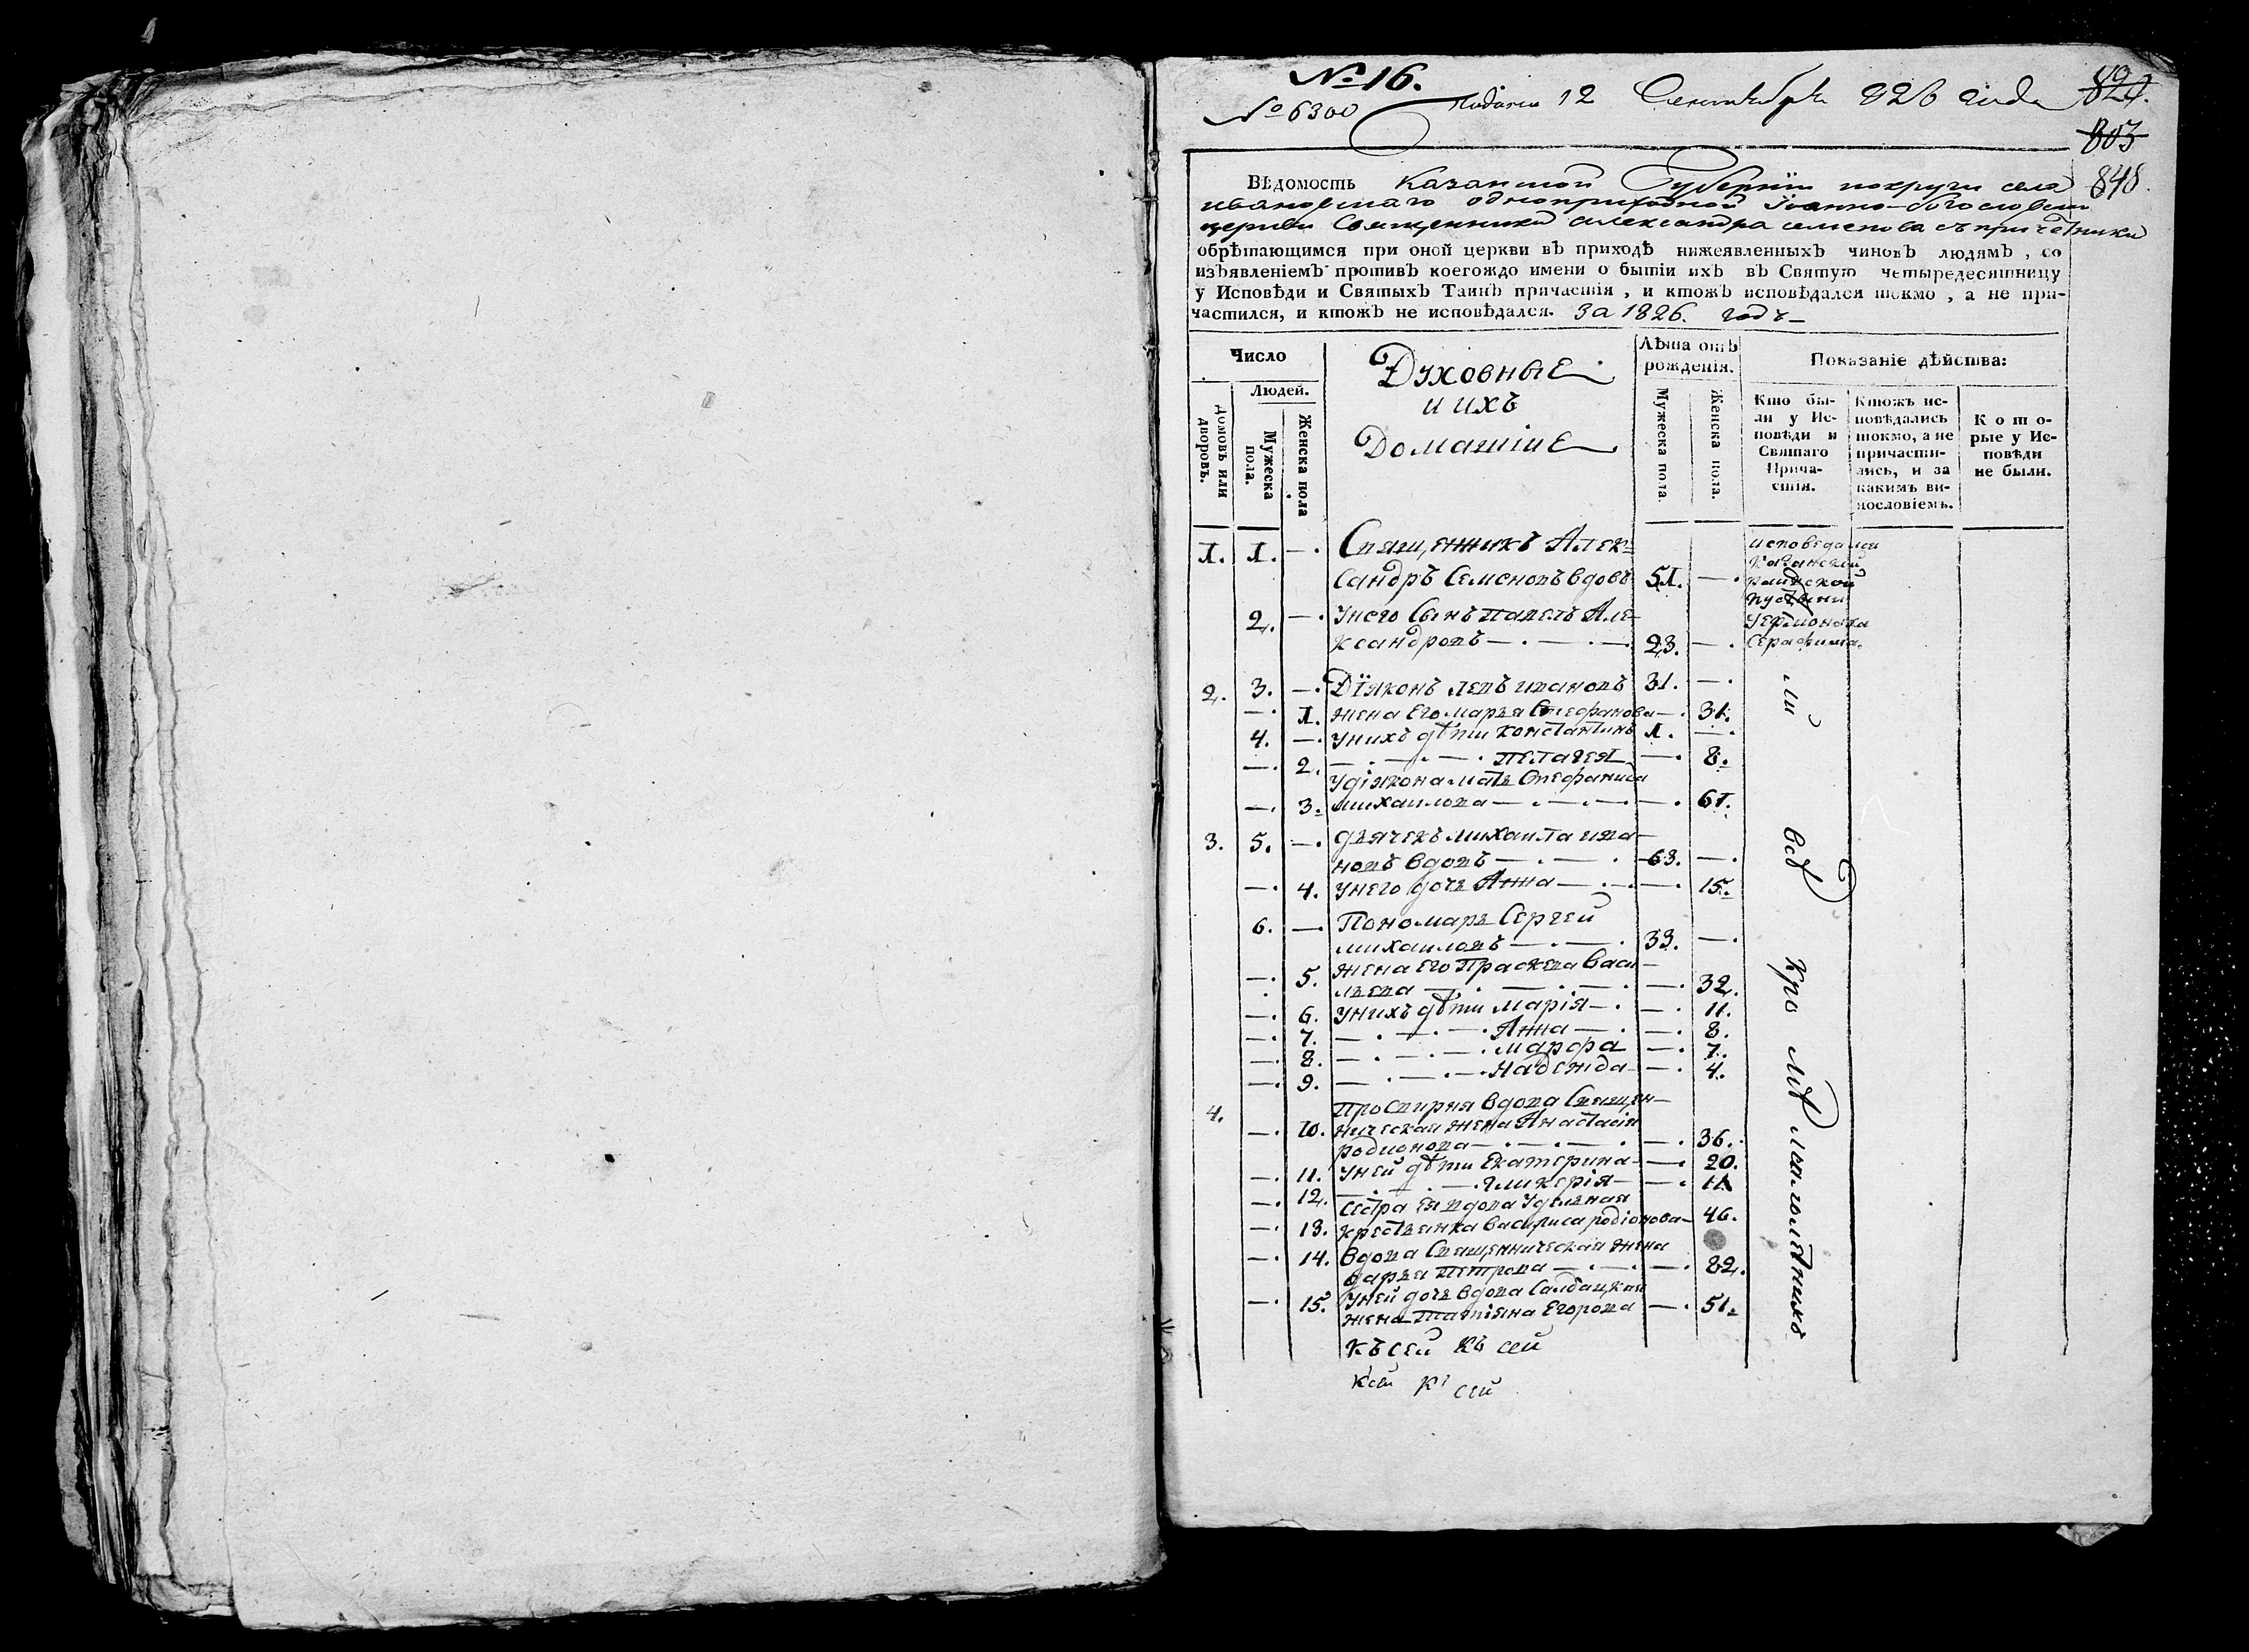 № 16.
№ 6300
Подана 12 Сентября 826 года
803
848.
Вѣдомость Казанской Губерніи и округи села
ивановскаго одноприходной Іоанно-богословской
церкви Священника александра семенова съ причетники
обрѣтающимся при оной церкви въ приходѣ нижеявленныхъ чиновъ людямъ, со
изъявленіемъ противъ коегождо имени о бытіи ихъ въ Святую четыредесятницу
у Исповѣди и Святыхъ Таинъ причастія, и ктожъ исповѣдался токмо, а не при-
частился, и ктожъ не исповѣдался. За 1826. годъ
Число
Людей.
Домовъ или дворовъ.
Мужеска пола.
Женска пола
Духовные
и ихъ
Домашніе
Лѣта отъ
рожденія.
Мужеска пола.
Женска пола.
Показаніе дѣйства:
Кто бы-
ли у Ис-
повѣди и
Святаго
Прича-
стія.
Ктожъ ис-
повѣдались
токмо, а не
причасти-
лись, и за
какимъ ви-
нословіемъ.
Кото-
рые у Ис-
повѣди
не были.
1. 1. —. Священникъ Алек-
сандръ Семеновъ вдовъ 51. —.
2. —. Унего Сынъ павелъ Але-
ксандровъ —. —. — 23. —.
исповедался
Казанской
раивской
пустыни
Иеромонаха
Серафима.
2. 3. —. Діяконъ левъ ивановъ 31. —.
—. 1. жена Его марья Стефанова —. 31.
4. —. унихъ дѣти константинъ 1. —.
—. 2. —. —. —. пелагея —. 8.
удіякона мать Стефанида
—. 3. михаилова —. —. — —. 61.
3. 5. —. дьячекъ михаила ива-
новъ вдовъ —. —. 63. —.
—. 4. унего дочь Анна —. — —. 15.
6. —. Пономарь Сергей
михаиловъ —. —. 33. —.
—. 5. жена Его Прасковья Васи-
льева —. —. —. —. 32.
—. 6. унихъ дѣти Марія —. —. 11.
—. 7. —. —. —. Анна —. —. 8.
—. 8. —. —. —. марфа —. 7.
—. 9. —. —. —. Надежда —. 4.
4. просвирня вдова Священ-
—. 10. ническая жена Анастасія
родионова —. —. —. —. 36.
—. 11. уней дѣти Екатерина —. 20.
—. 12. —. —. —. гликерія —. 11
Сестра ея вдова Удельная
—. 13. крестьянка василиса родіонова — 46.
—. 14. вдова Священническая жена
дарья петрова —. —. —. 82.
—. 15. уней дочь вдова Салдацкая
жена татіяна Егорова —. 51.
ли
всѣ
кро
мѣ
малолѣтнихъ
Къ сей Къ сей